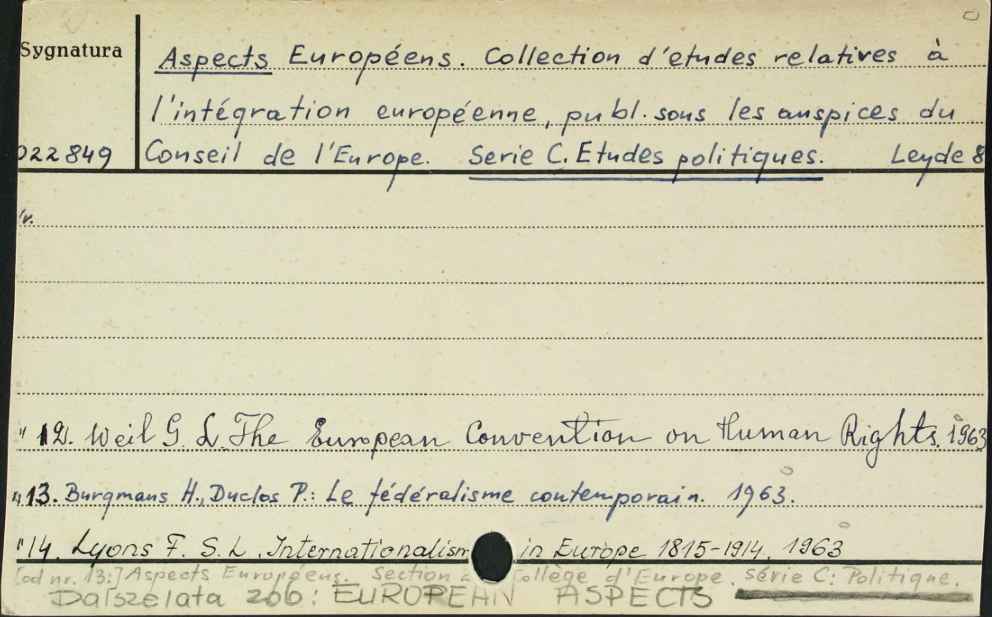 Sygnatura
Aspects Européens. Collection d'etudes relatives à
l'intégration européenne, publ. sous les auspices du
022849 Conseil de l'Europe. Serie C. Etudes politiques. Leyde 8
v.
" 12. Weil G. L. The European Convention on Human Rights. 1963
" 13. Burgmans H., Duclos P.: Le fédéralisme contemporain. 1963.
" 14. Lyons F. S. L. Internationalism in Europe 1815-1914. 1963
[od nr. 13:] Aspects Européens. Section Collège d'Europe. série C: Politique.
Dalsze lata zob: EUROPEAN ASPECTS